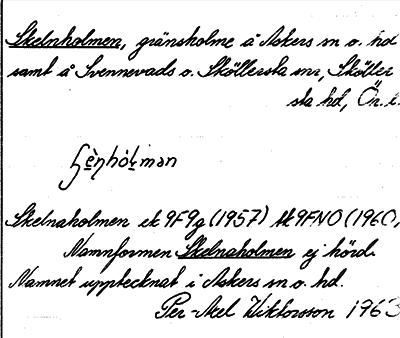 Skelnholmen, gränsholme å Askers sn o. hd
samt å Svennevads o. Sköllersta snr, Sköller
sta hd, Ör. l.
Skelnaholmen ek 9F9g (1957) tk 9FNO (1960,
Namnformen Skelnaholmen ej hörd.
Namnet upptecknat i Askers sn o. hd.
Per-Axel Wiktorsson 1963